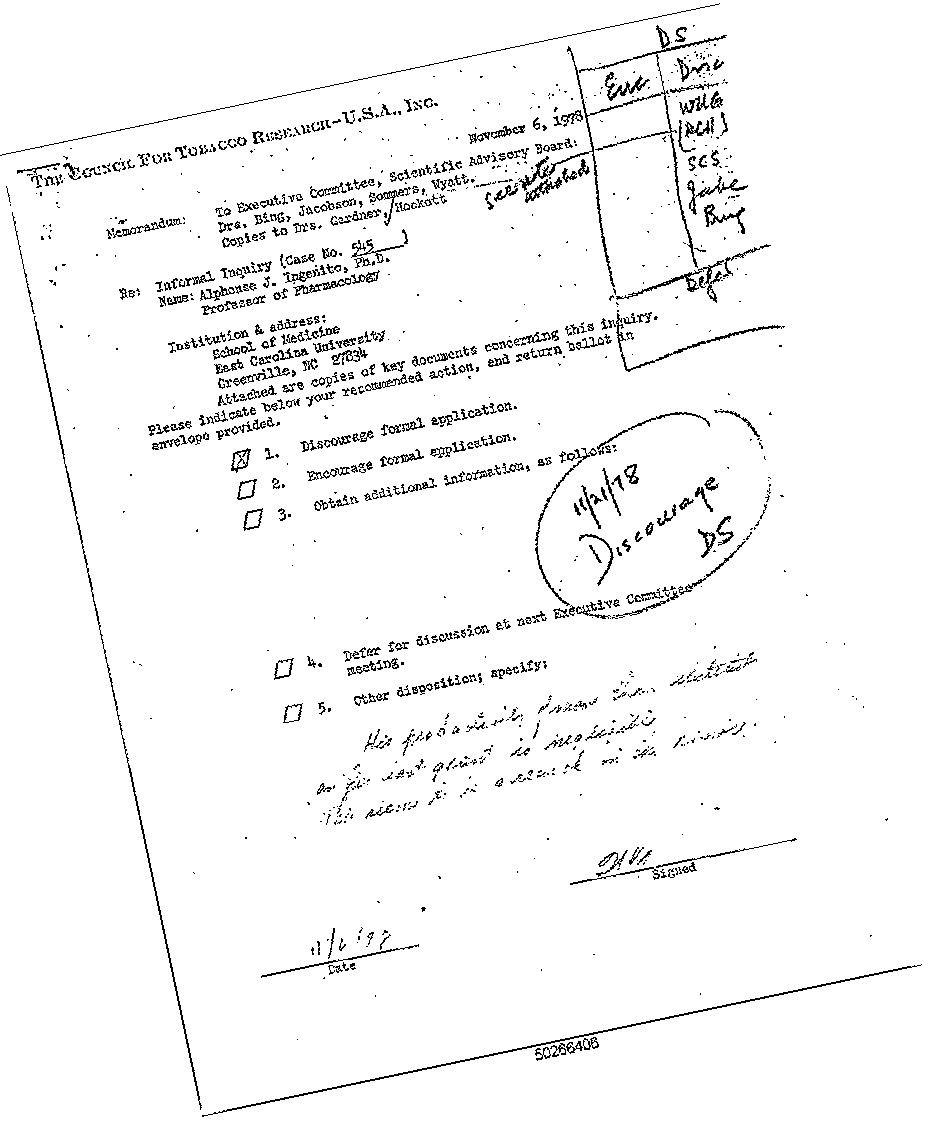 DS
Enc Disc
WUG
SCS
Jabe
Bing
Defer
THE COUNCIL FOR TOBACCO RESEARCH-U.S.A., INC.
November 6, 1978
Memorandum: To Executive Committee, Scientific Advisory Board:
Drs. Bing, Jacobson, Sommers, Wyatt.
Copies to Drs. Gardner, Hockett
attached
Re: Informal Inquiry (Case No. 545 )
Name: Alphonse J. Ingenito, Ph.D.
Professor of Pharmacology
Institution & address:
School of Medicine
East Carolina University
Greenville, NC 27834
Attached are copies of key documents concerning this inquiry.
Please indicate below your recommended action, and return ballot in
envelope provided.
1. Discourage formal application.
2. Encourage formal application.
3. Obtain additional information, as follows:
11/21/78
Discourage
DS
4. Defer for discussion at next Executive Committee
meeting.
5. Other disposition; specify:
His productivity from
grant is negligible
This seems to
Signed
Date
50266406